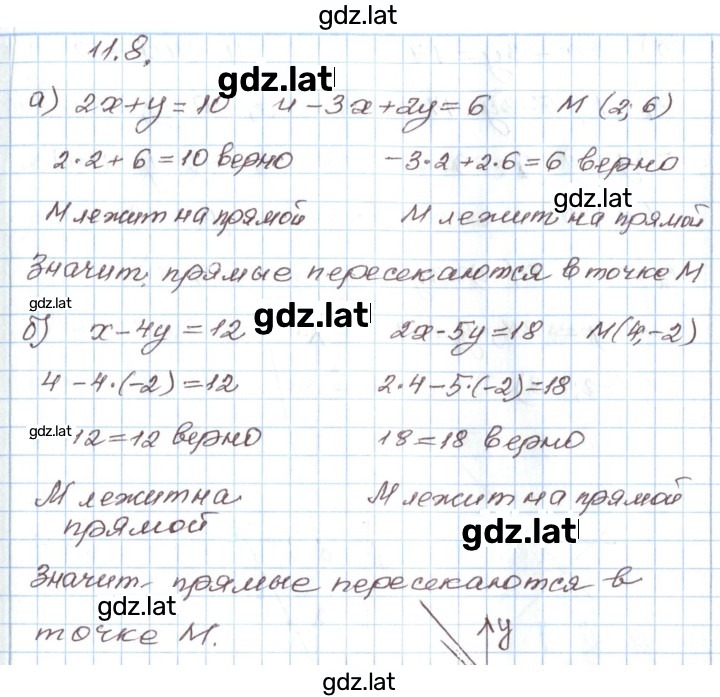 gdz.lat
11.8.
gdz.lat
а) 2x+y=10 и -3x+2y=6 М (2; 6)
2·2+6=10 верно -3·2+2·6=6 верно
gdz.lat
М лежит на прямой М лежит на прямой
Значит, прямые пересекаются в точке М
gdz.lat
gdz.lat
б) x-4y=12 2x-5y=18 М(4;-2)
4-4·(-2)=12 2·4-5·(-2)=18
gdz.lat 12=12 верно 18=18 верно
М лежит на М лежит на прямой
прямой
gdz.lat
Значит, прямые пересекаются в
gdz.lat
точке М.
y
gdz.lat